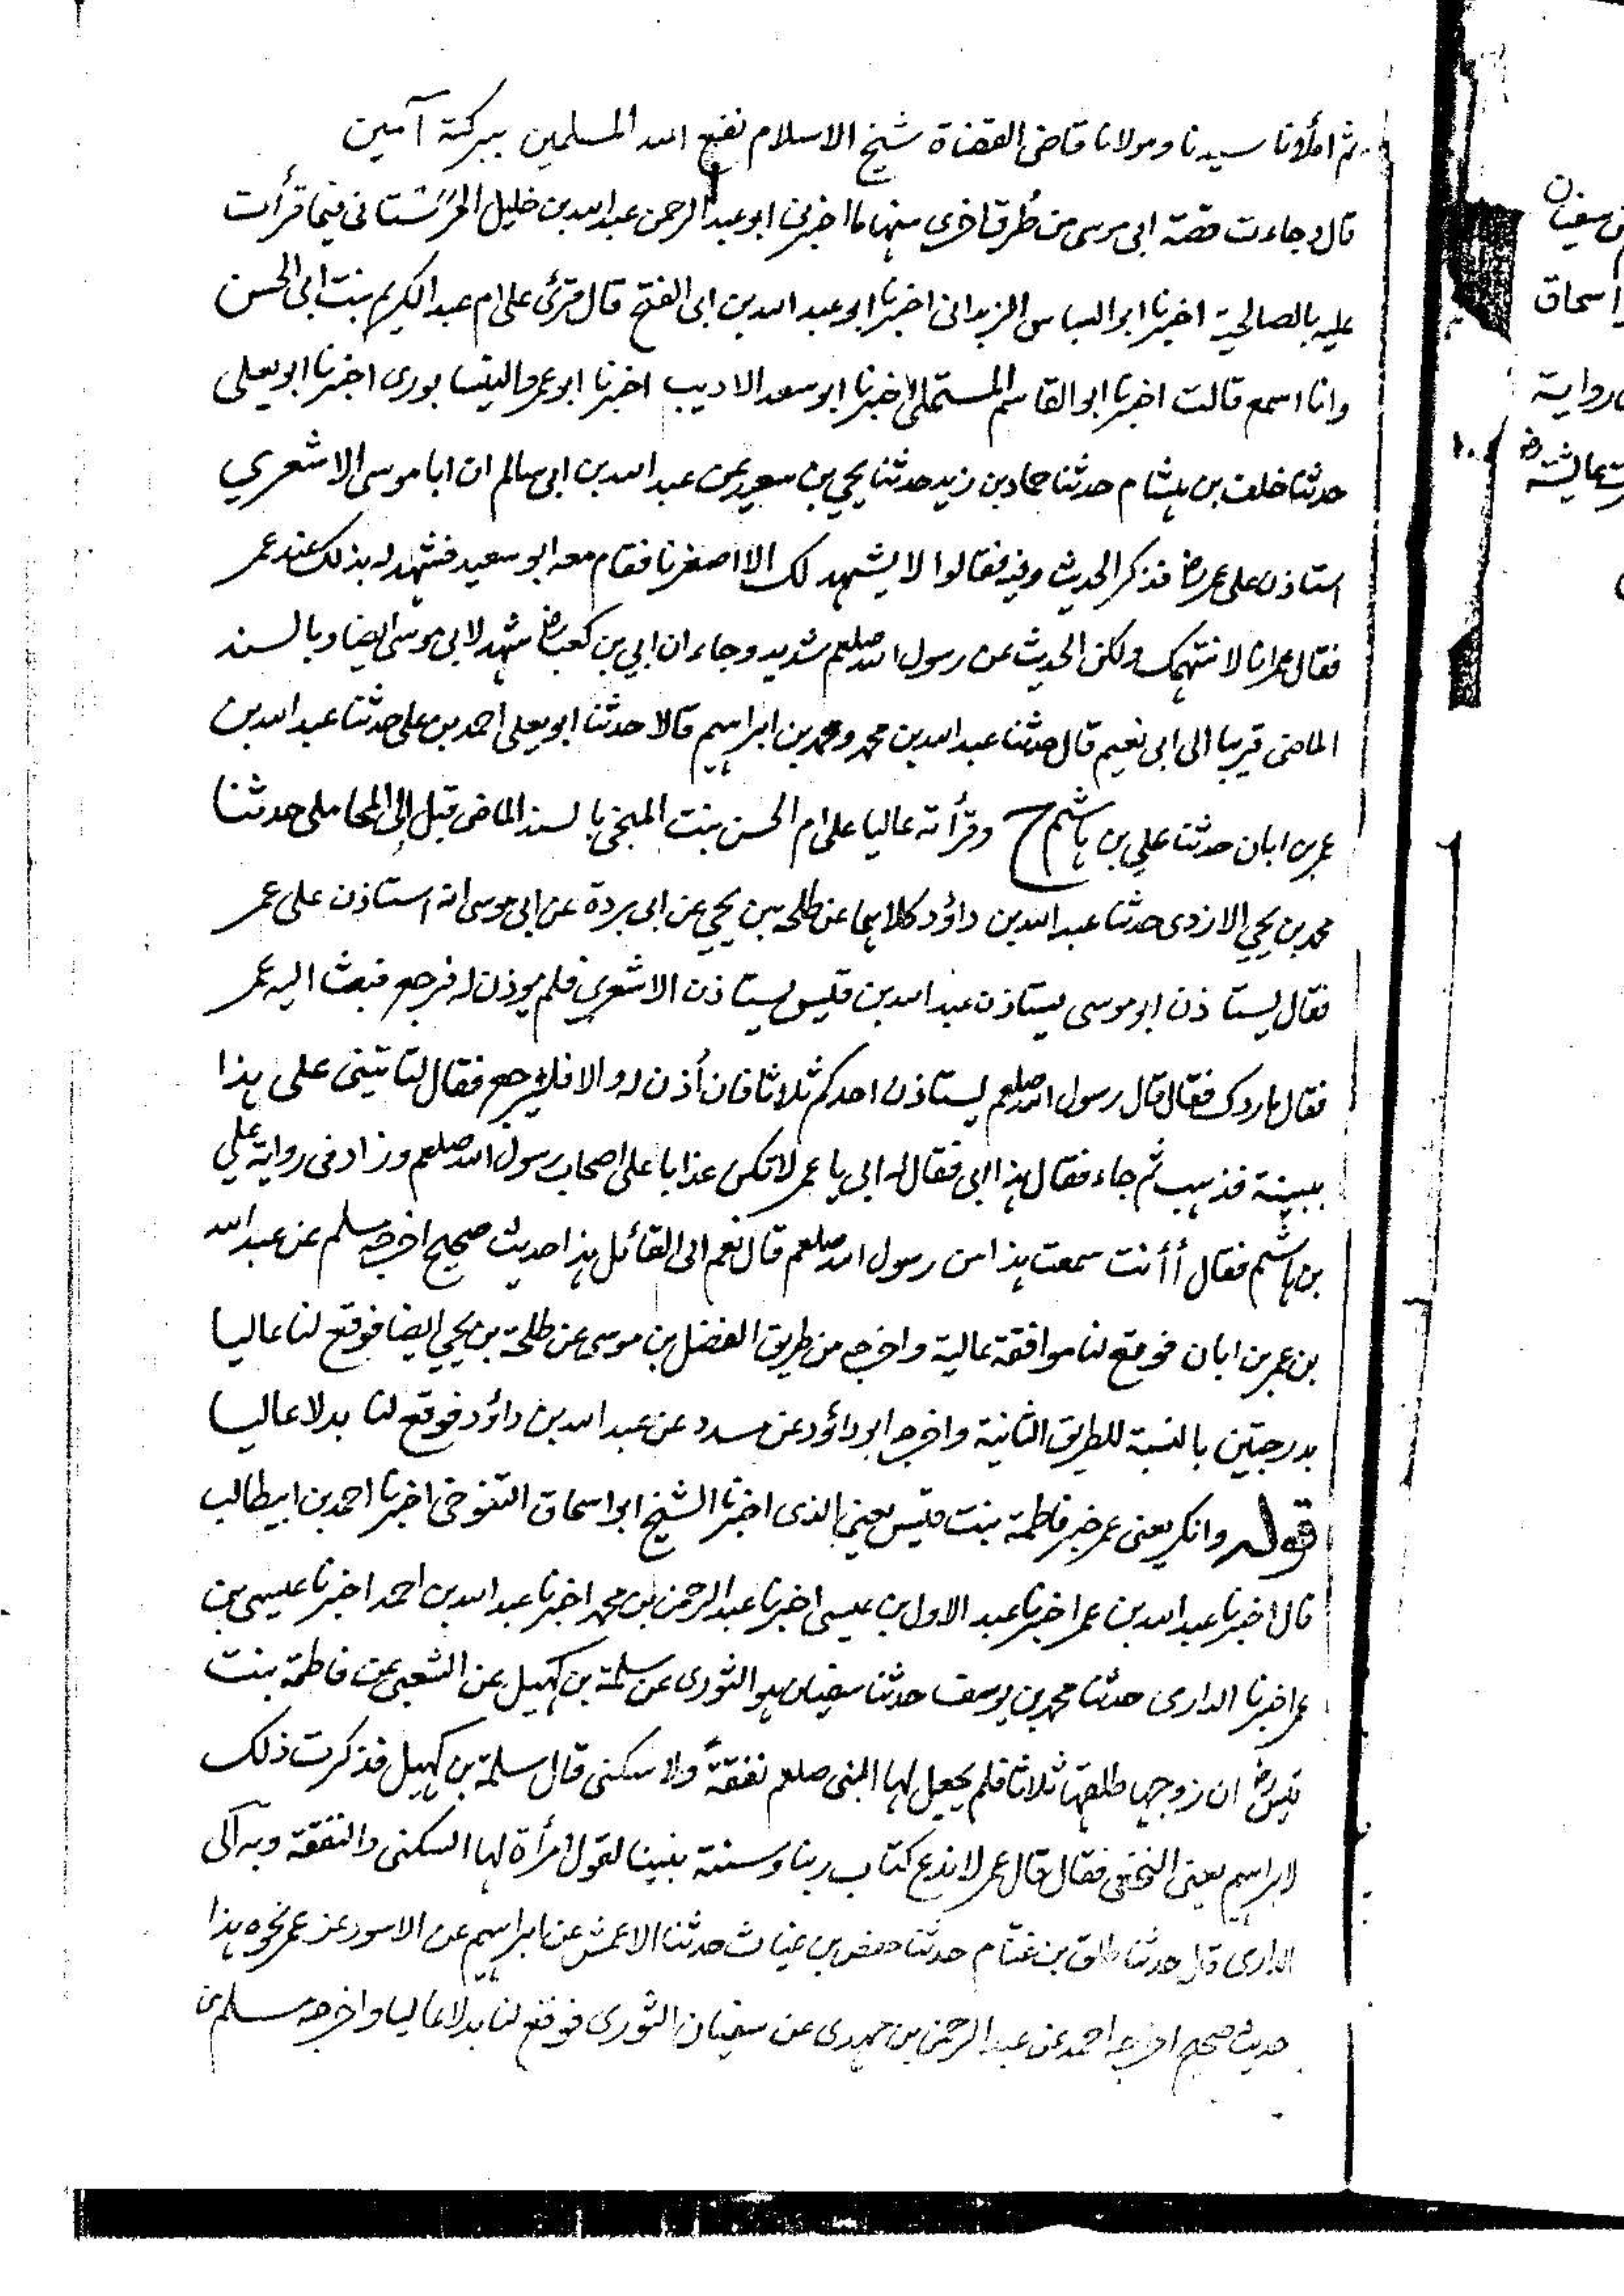 ثم املأنا سيدنا ومولانا قاضى القضاة شيخ الاسلام نفع الله المسلمين ببركته آمين
قال وجاءت قصة ابى موسى من طُرق اخرى منها ما اخبرنى ابو عبد الرحمن عبد الله بن خليل الحرستانى فيما قرأت
عليه بالصالحية اخبرنا ابو العباس الزبدانى اخبرنا ابو عبد الله بن ابى الفتح قال قرئ على ام عبد الكريم بنت ابى الحسن
وانا اسمع قالت اخبرنا ابو القاسم المستملى اخبرنا ابو سعد الاديب اخبرنا ابو عمرو النيسابورى اخبرنا ابو يعلى
حدثنا خلف بن هشام حدثنا حماد بن زيد حدثنا يحيي بن سعيد عن عبد الله بن ابى سالم ان ابا موسى الاشعري
استاذن على عمر رض فذكر الحديث وفيه فقالوا لا يشهد لك الا اصغرنا فقام معه ابو سعيد فشهد له بذلك عند عمر
فقال عمر انا لا نتهمك ولكن الحديث عن رسول الله صلعم شديد وجاء ان ابي بن كعب رض شهد لابى موسى ايضا وبالسند
الماضى قريبا الى ابى نعيم قال حدثنا عبد الله بن محمد ومحمد بن ابراهيم قالا حدثنا ابو يعلى احمد بن على حدثنا عبد الله بن
عمر بن ابان حدثنا علي بن هاشم ح وقرأته عاليا على ام الحسن بنت المنجى بالسند الماضى قبل الى المحاملى حدثنا
محمد بن يحيي الازدى حدثنا عبد الله بن داؤد كلاهما عن طلحة بن يحيي عن ابى بردة عن ابى موسى انه استاذن على عمر
فقال يستاذن ابو موسى يستاذن عبد الله بن قيس يستاذن الاشعري فلم يوذن له فرجع فبعث اليه عمر
فقال ما ردك فقال قال رسول الله صلعم ليستاذن احدكم ثلاثا فان أذن له والا فليرجع فقال لتاتينى على هذا
ببينة فذهب ثم جاء فقال هذا ابى فقال له ابى يا عمر لا تكن عذابا على اصحاب رسول الله صلعم وزاد فى رواية علي
بن هاشم فقال أأنت سمعت هذا من رسول الله صلعم قال نعم الى القائل هذا حديث صحيح اخرجه مسلم عن عبد الله
بن عمر بن ابان فوقع لنا موافقة عالية واخرجه من طريق الفضل بن موسى عن طلحة بن يحيي ايضا فوقع لنا عاليا
بدرجتين بالنسبة للطريق الثانية واخرجه ابو داؤد عن مسدد عن عبد الله بن داؤد فوقع لنا بدلا عاليا
قوله وانكر يعنى عمر خبر فاطمة بنت قيس يعنى الذى اخبرنا الشيخ ابو اسحاق التنوخى اخبرنا احمد بن ابيطالب
قال اخبرنا عبد الله بن عمر اخبرنا عبد الاول بن عيسى اخبرنا عبد الرحمن بن محمد اخبرنا عبد الله بن احمد اخبرنا عيسى بن
عمر اخبرنا الدارى حدثنا محمد بن يوسف حدثنا سفيان هو الثورى عن سلمة بن كهيل عن الشعبى عن فاطمة بنت
قيس رض ان زوجها طلقها ثلاثا فلم يجعل لها النبى صلعم نفقةً ولا سكنى قال سلمة بن كهيل فذكرت ذلك
لابراهيم يعنى النخعى فقال قال عمر لا ندع كتاب ربنا وسنة نبينا لقول امرأة لها السكنى والنفقة وبه الى
الدارى قال حدثنا طلق بن غنام حدثنا حفص بن غياث حدثنا الاعمش عن ابراهيم عن الاسود عن عمر نحوه هذا
حديث صحيح اخرجه احمد عن عبد الرحمن بن مهدى عن سفيان الثورى فوقع لنا بدلا عاليا واخرجه مسلم
سفيان
اسحاق
رواية
عايشة رض